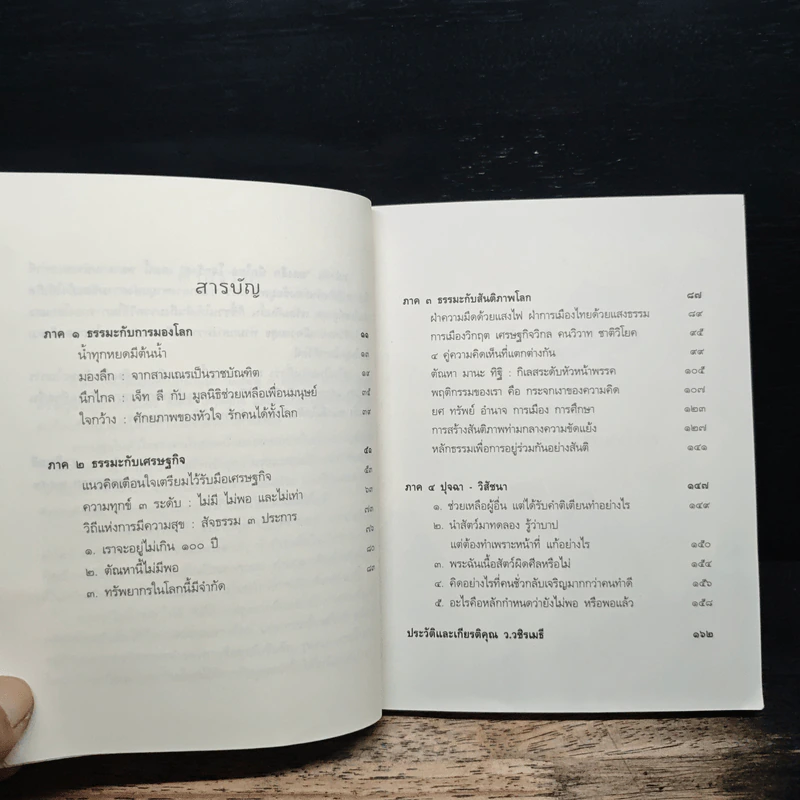 สารบัญ
ภาค ๑ ธรรมะกับการมองโลก ๑๑
น้ำทุกหยดมีต้นน้ำ ๑๓
มองลึก : จากสามเณรเป็นราชบัณฑิต
นึกไกล : เจ็ท ลี กับ มูลนิธิช่วยเหลือเพื่อนมนุษย์
ใจกว้าง : ศักยภาพของหัวใจ รักคนได้ทั้งโลก
ภาค ๒ ธรรมะกับเศรษฐกิจ ๕๑
แนวคิดเตือนใจเตรียมไว้รับมือเศรษฐกิจ ๕๓
ความทุกข์ ๓ ระดับ : ไม่มี ไม่พอ และไม่เท่า
วิถีแห่งการมีความสุข : สัจธรรม ๓ ประการ
๑. เราจะอยู่ไม่เกิน ๑๐๐ ปี
๒. ตัณหานี้ไม่มีพอ
๓. ทรัพยากรในโลกนี้มีจำกัด
ภาค ๓ ธรรมะกับสันติภาพโลก ๘๗
ฝ่าความมืดด้วยแสงไฟ ฝ่าการเมืองไทยด้วยแสงธรรม ๘๙
การเมืองวิกฤต เศรษฐกิจวิกล คนวิวาท ชาติวิโยค ๙๕
๔ คู่ความคิดเห็นที่แตกต่างกัน ๙๙
ตัณหา มานะ ทิฐิ : กิเลสระดับหัวหน้าพรรค ๑๐๕
พฤติกรรมของเรา คือ กระจกเงาของความคิด ๑๐๗
ยศ ทรัพย์ อำนาจ การเมือง การศึกษา ๑๒๓
การสร้างสันติภาพท่ามกลางความขัดแย้ง ๑๒๗
หลักธรรมเพื่อการอยู่ร่วมกันอย่างสันติ ๑๔๑
ภาค ๔ ปุจฉา - วิสัชนา ๑๔๗
๑. ช่วยเหลือผู้อื่น แต่ได้รับคำติเตียนทำอย่างไร ๑๔๙
๒. นำสัตว์มาทดลอง รู้ว่าบาป
แต่ต้องทำเพราะหน้าที่ แก้อย่างไร ๑๕๐
๓. พระฉันเนื้อสัตว์ผิดศีลหรือไม่ ๑๕๔
๔. คิดอย่างไรที่คนชั่วกลับเจริญมากกว่าคนทำดี ๑๕๖
๕. อะไรคือหลักกำหนดว่ายังไม่พอ หรือพอแล้ว ๑๕๘
ประวัติและเกียรติคุณ ว.วชิรเมธี ๑๖๒